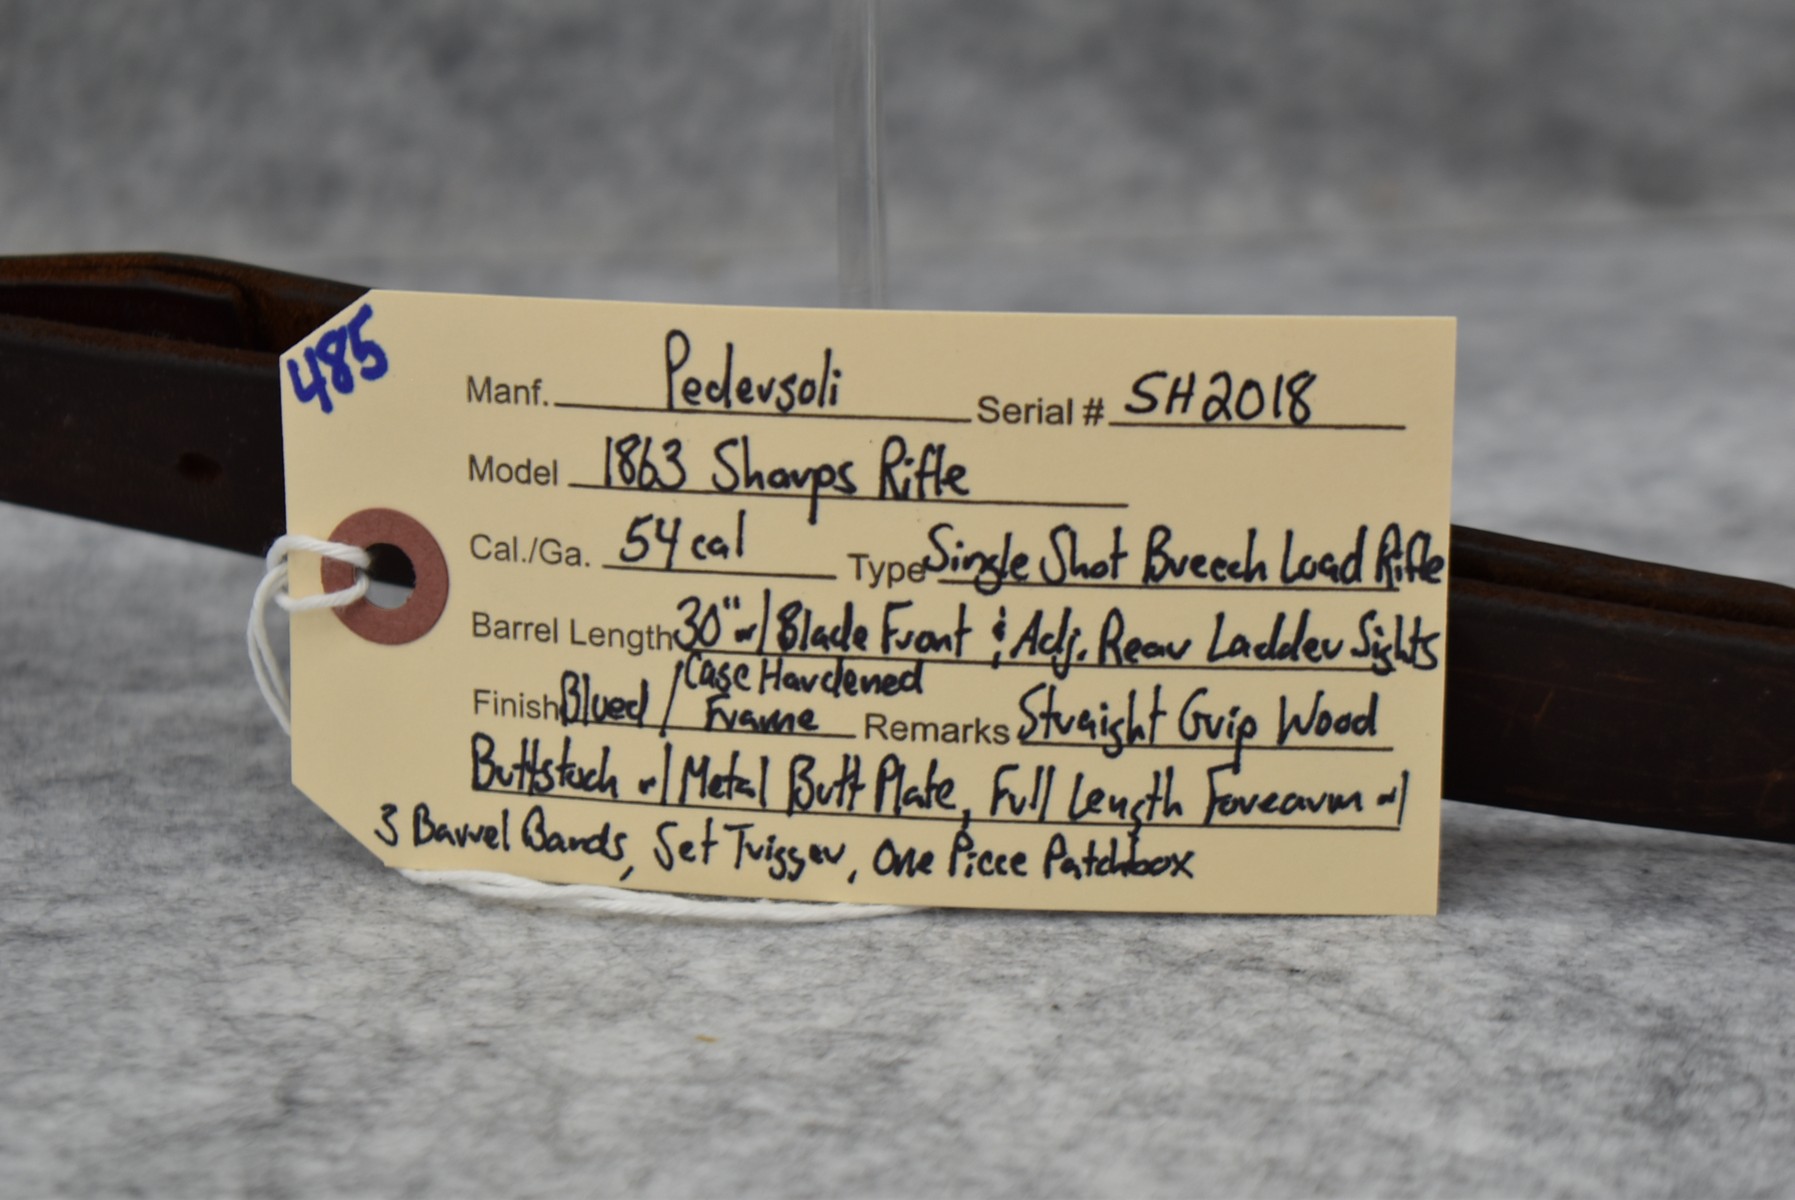 485
Manf. Pedersoli Serial # SH2018
Model 1863 Sharps Rifle
Cal./Ga. 54 cal Type Single Shot Breech Load Rifle
Barrel Length 30" w/ Blade Front & Adj. Rear Ladder Sights
Finish Blued / Case Hardened Frame Remarks Straight Grip Wood
Buttstock w/ Metal Butt Plate, Full Length Forearm w/
3 Barrel Bands, Set Trigger, One Piece Patchbox